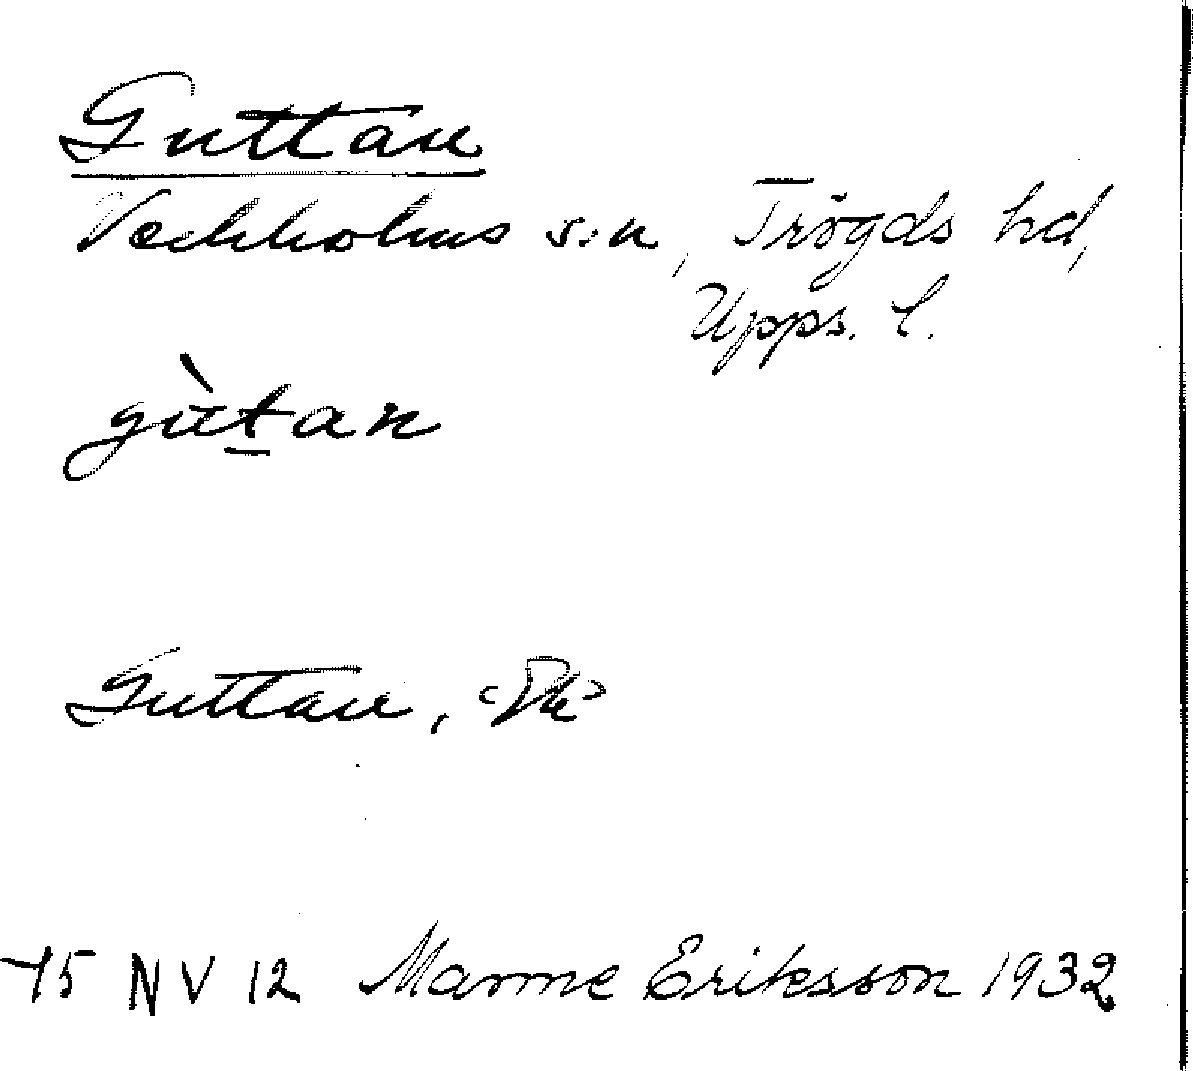 Guttan
Veckholms s:n, Trögds hd,
Upps. l.
gùt̠an
Guttan,
75 NV 12 Manne Eriksson 1932